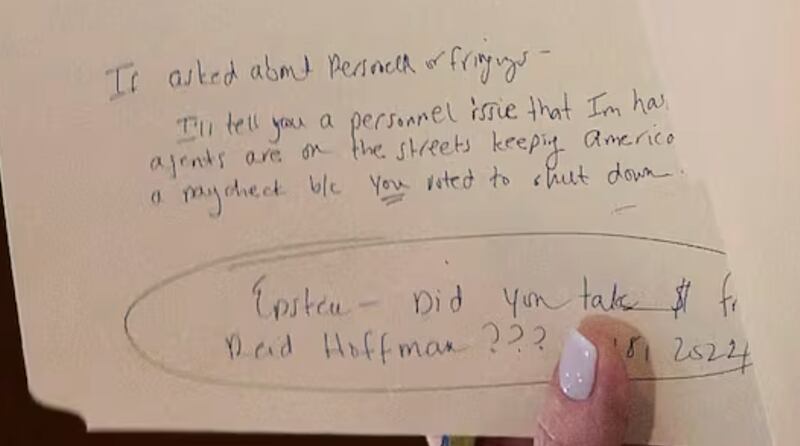 If asked about Personnel or firings -
I'll tell you a personnel issie that Im ha
agents are on the streets keeping America
a paycheck b/c you voted to shut down.
Epstein - Did you take $ fr
Reid Hoffman ???